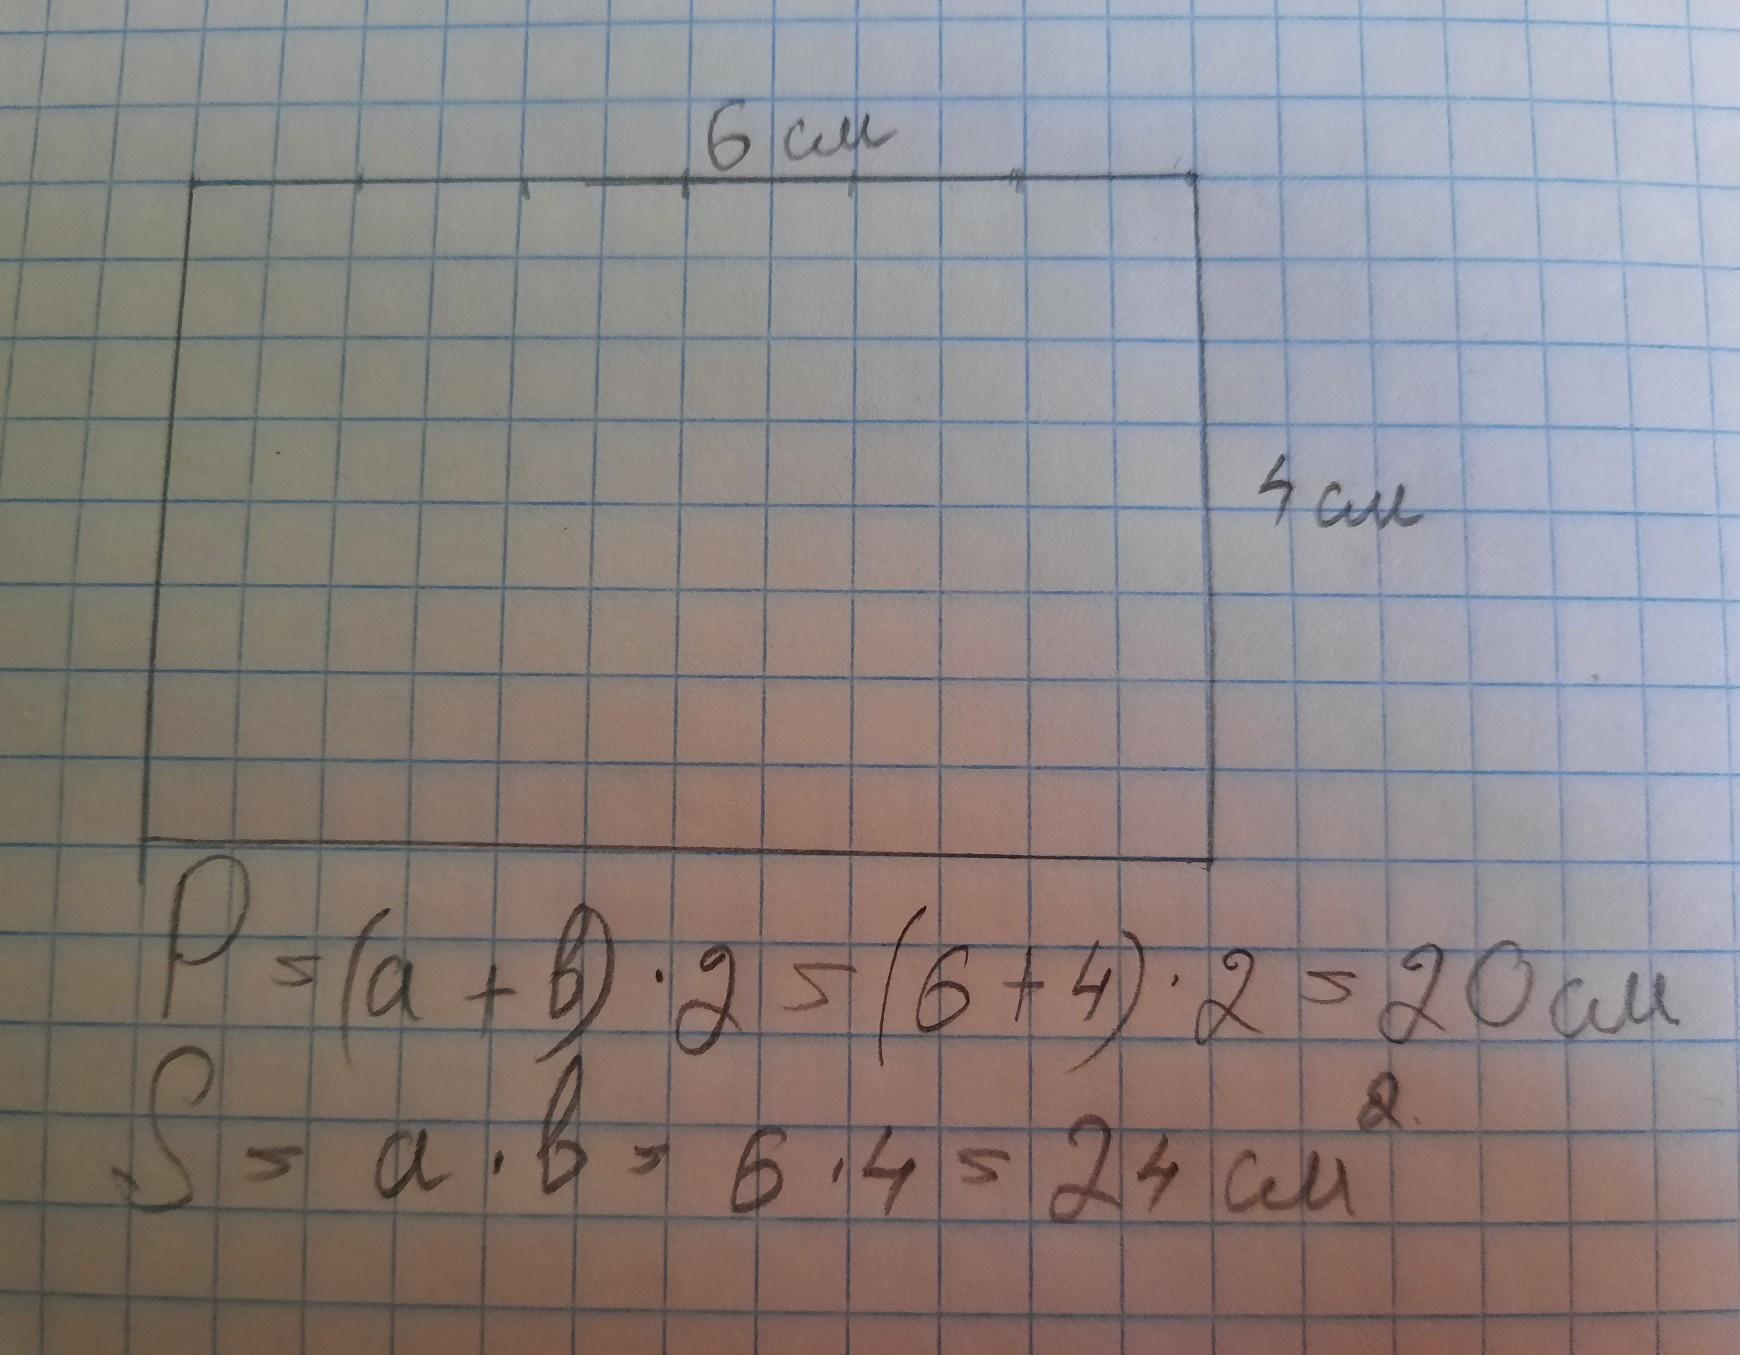 6 см
4 см
P = (a + b) · 2 = (6 + 4) · 2 = 20 см
S = a · b = 6 · 4 = 24 см²